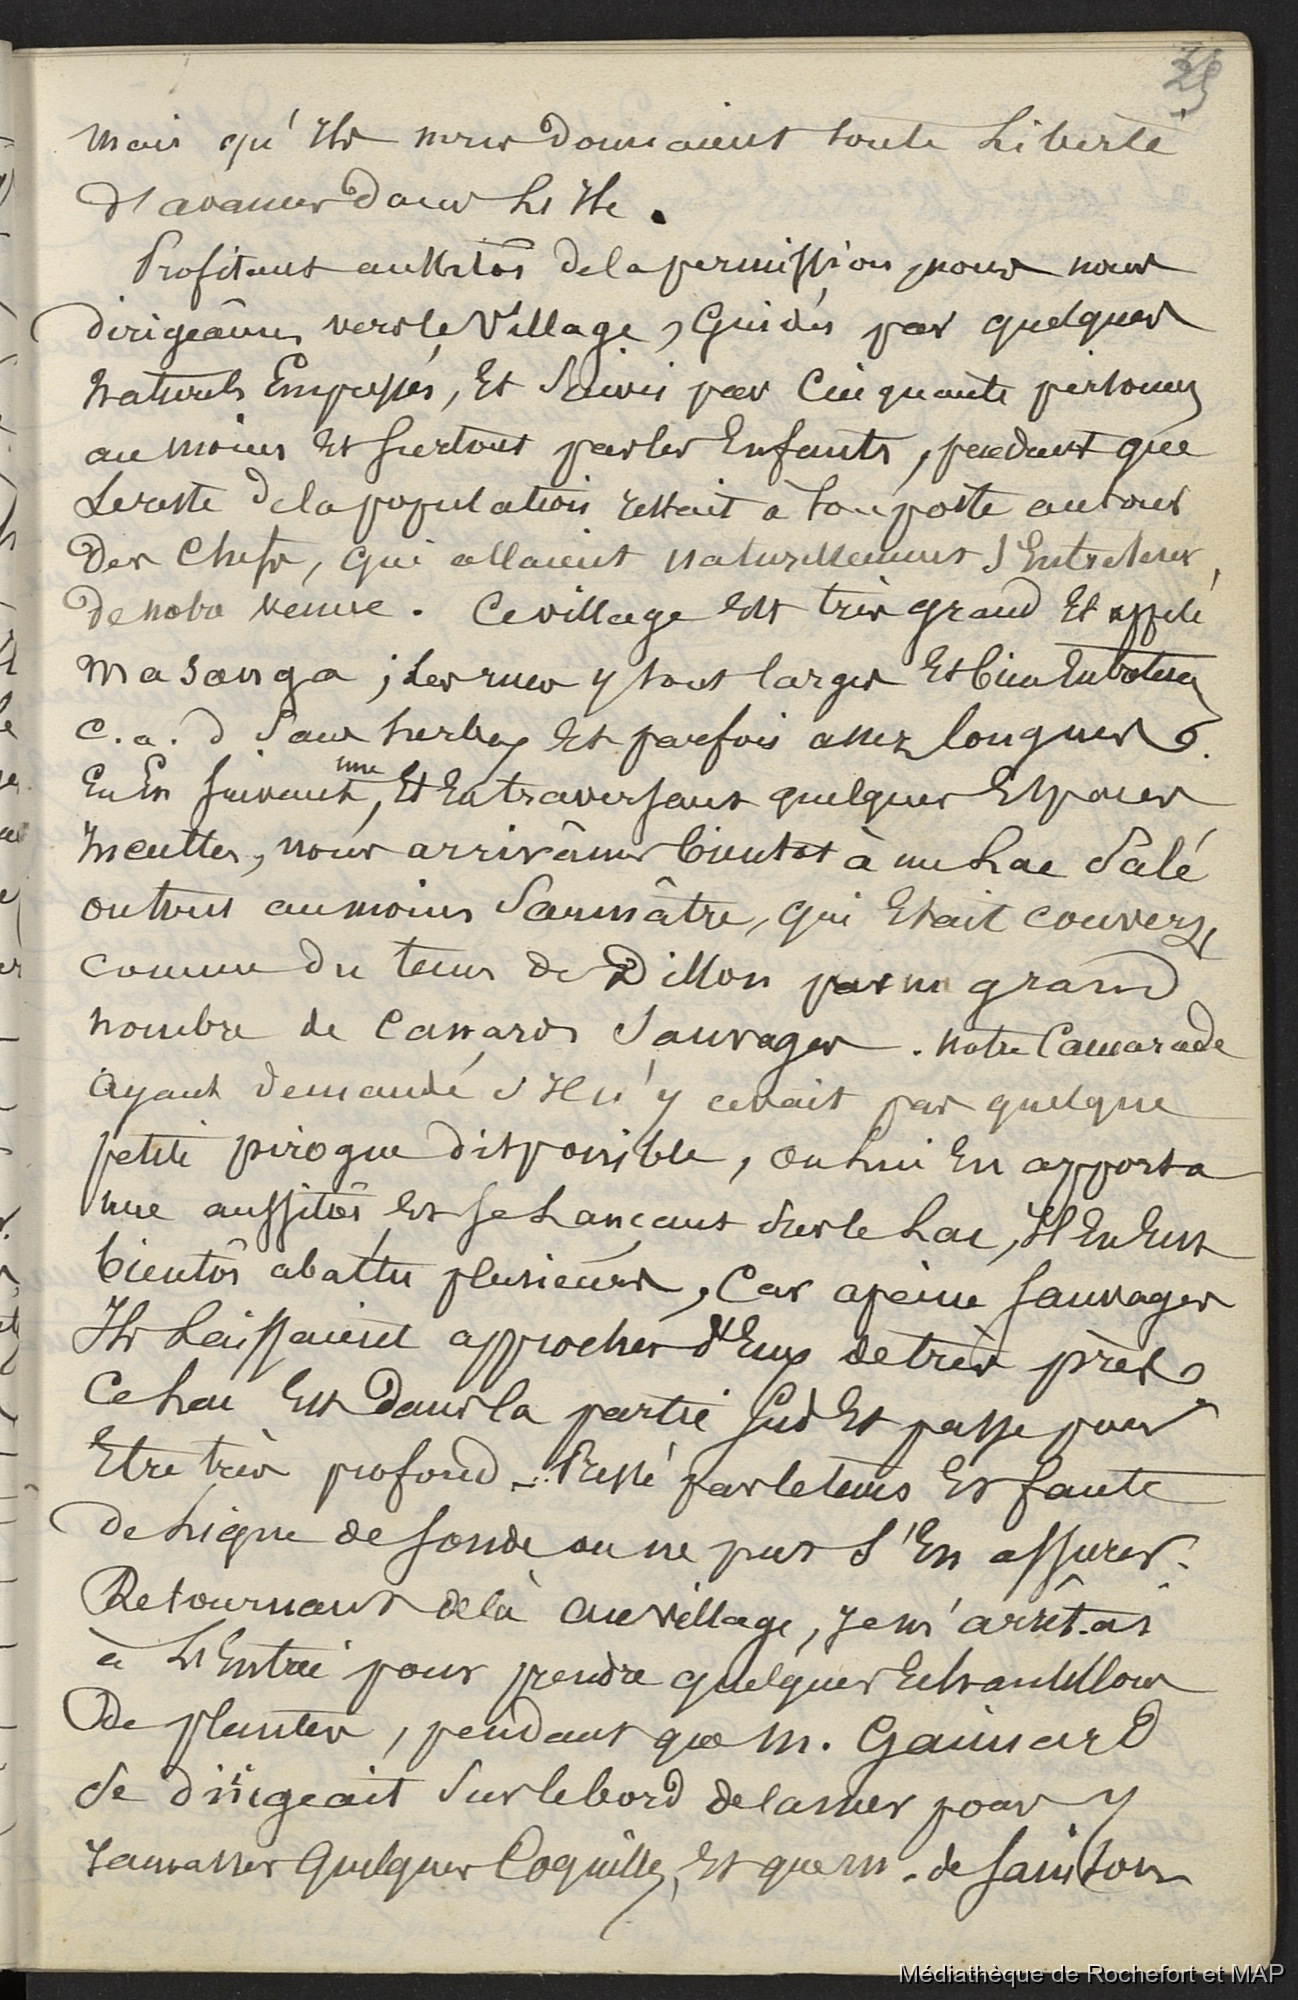 25
mais qu'Ils nous Donnaient toute Liberté
D'avancer Dans L'Ile.
Profitant aussitôt de la permission, nous nous
dirigeâmes vers le Village, Guidés par quelques
naturels Empressés, Et Suivis par Cinquante personnes
au moins Et surtout par les Enfants, pendant que
Le reste De la population restait à son poste autour
Des Chefs, qui allaient naturellement s'Entretenir
De notre venue. Ce village Est très grand Et appelé
Masanga ; Les rues y sont larges Et bien Entretenues
C.a.d Sans herbes Et parfois assez longues.
En En suivant une, Et En traversant quelques Espaces
Incultes, nous arrivâmes bientot à un Lac Salé
ou tout au moins Saumâtre, qui Etait couvert,
comme Du tems de Dillon par un grand
nombre de Canards Sauvages. Notre Camarade
ayant demandé s'Il n'y avait pas quelque
petite pirogue Disponible, on Lui En apporta
une aussitôt Et se Lançant sur le Lac, Il En Eut
bientôt abattu plusieurs, Car apeine sauvages
Ils Laissaient approcher d'Eux de très près.
Ce Lac Est Dans la partie sud Et passe pour
Etre très profond. Pressé par le tems Et faute
de Ligne de sonde on ne put s'En assurer.
Retournant delà au village, Je m'arrêtai
à L'Entrée pour prendre quelques Echantillons
De plantes, pendant que M. Gaimard
se dirigeait sur le bord de la mer pour y
ramasser Quelques Coquilles, Et que M. de Sainson
Médiathèque de Rochefort et MAP